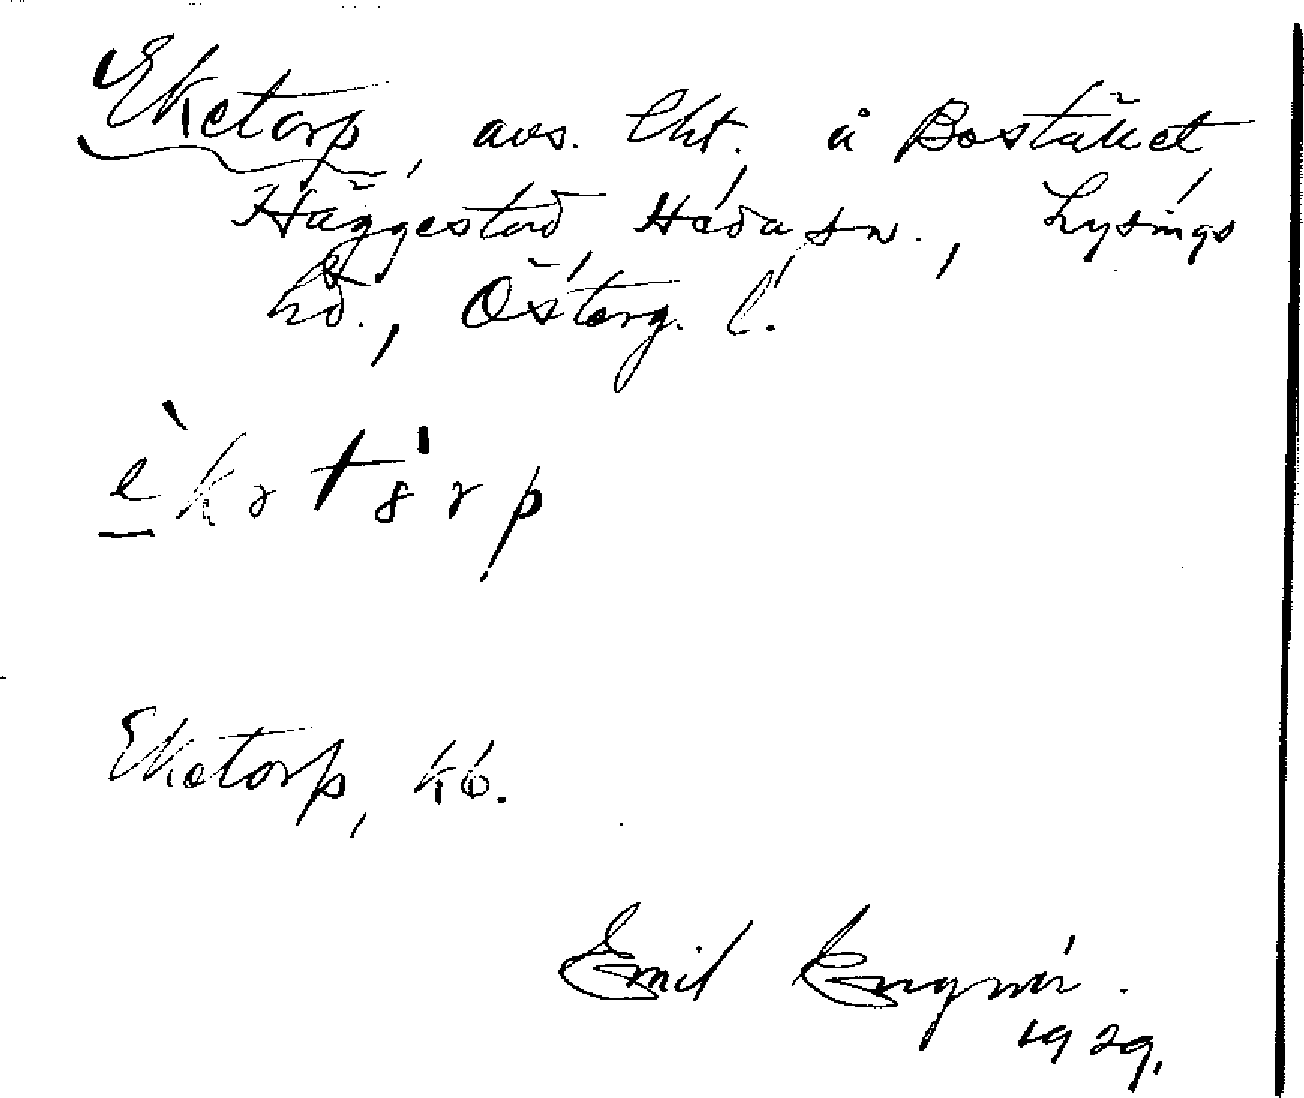 Eketorp, avs. lht. å Bostället
Häggestad, Heda sn., Lysings
hd., Österg. l.
è k ə t ɵ̍ r p
Eketorp, kb.
Emil Engnér.
1929.